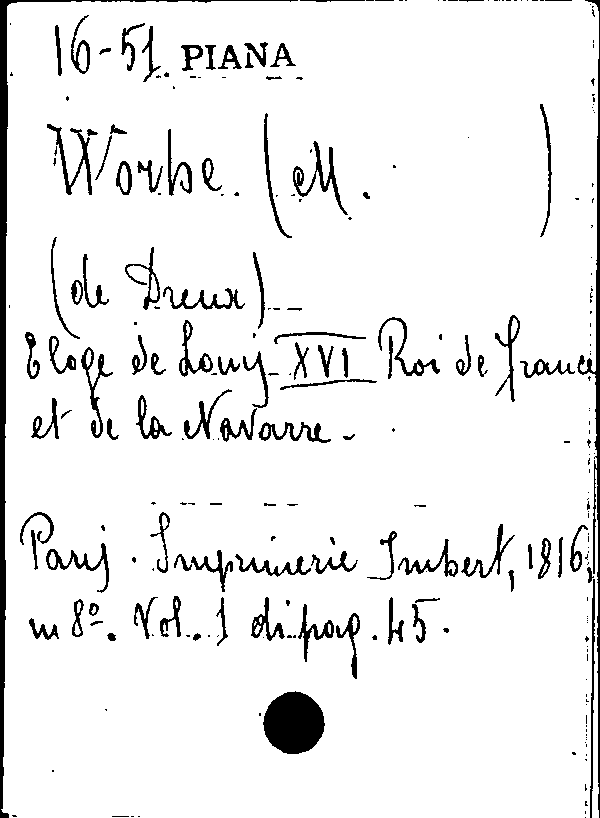 16-51. PIANA
Worbe. (M. )
(de Dreux)
Eloge de Louis XVI Roi de France
et de la Navarre.
Paris. Imprimerie Imbert, 1816,
in 8º. Vol. 1 di pag. 45.